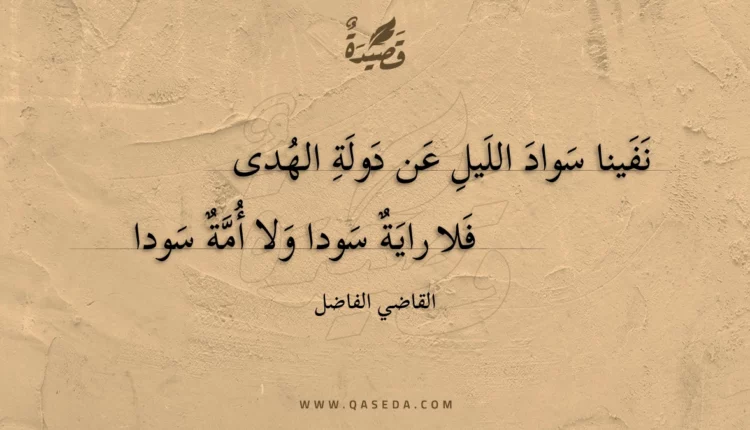 قَصِيدَةٌ
نَفَينا سَوادَ اللَيلِ عَن دَولَةِ الهُدى
فَلا رايَةٌ سَودا وَلا أُمَّةٌ سَودا
القاضي الفاضل
WWW.QASEDA.COM